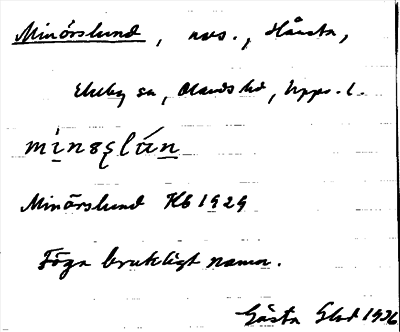 Minörslund, avs., Hånsta,
Ekeby sn, Olands hd, Upps. l.
Minörslund Kb 1929
Föga brukligt namn.
Gösta 1936